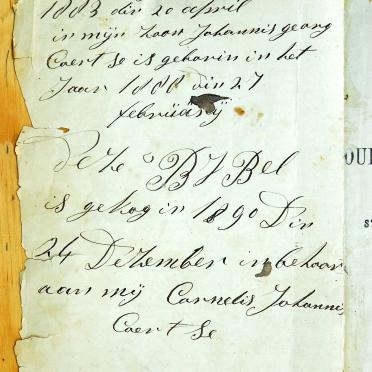 1883 din 20 april
in mijn zoon Johannis georg
Coertse is geborin in het
Jaar 1888 din 27
februarij
Deze BYBel
is gekog in 1890 Din
24 Dezember in behoor
aan mij Cornelis Johannis
Coertse
OU
S